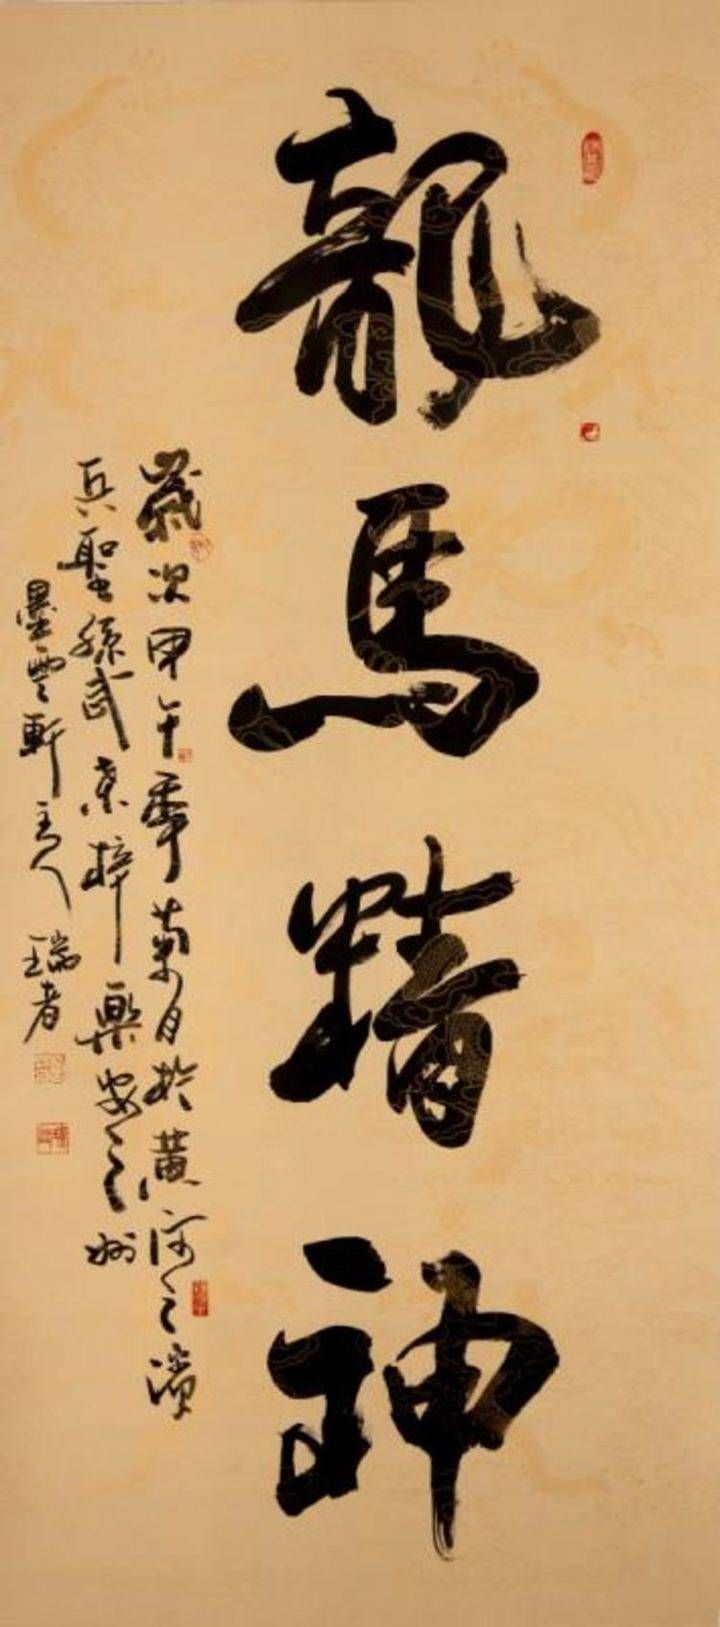 龍馬精神
歲次甲午季菊月於黃河之濱
兵聖孫武桑梓樂安之州
墨雲軒主人瑞者